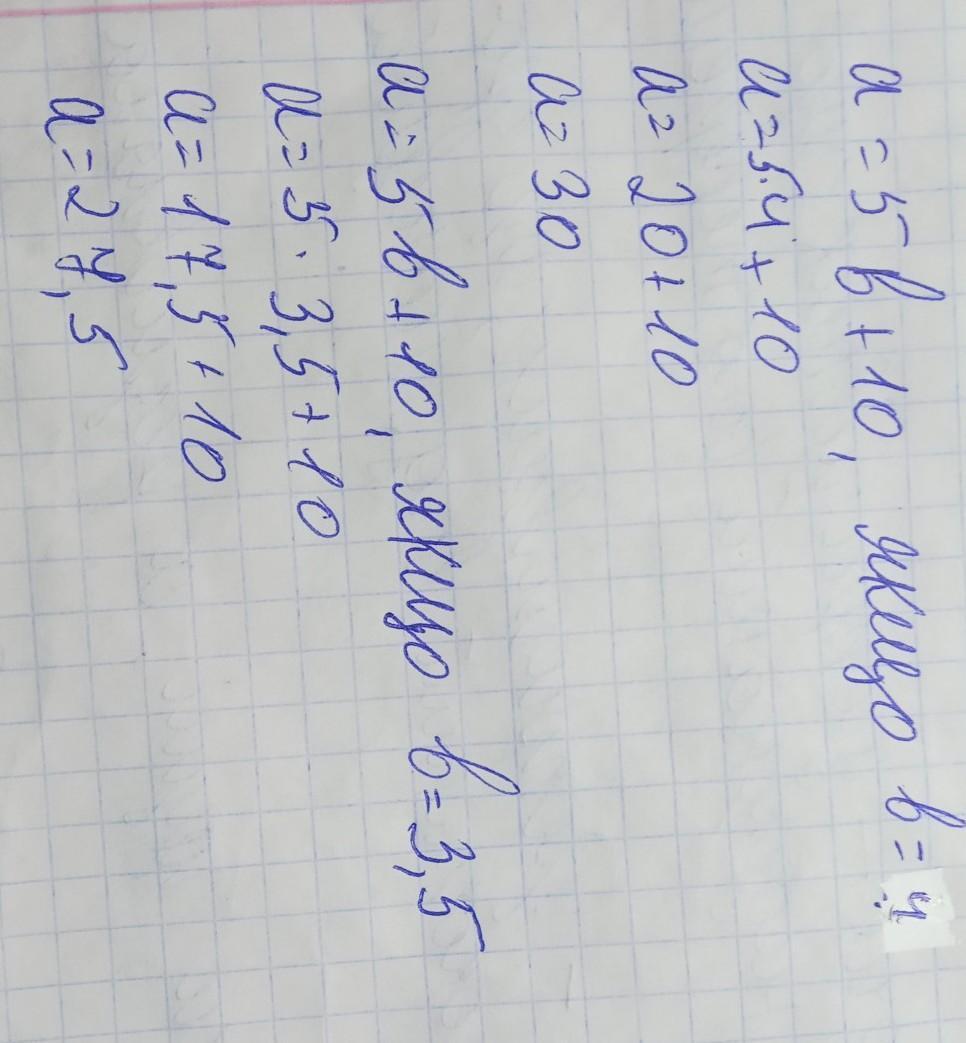 a = 5b + 10, якщо b = 4
a = 5·4 + 10
a = 20 + 10
a = 30
a = 5b + 10, якщо b = 3,5
a = 5 · 3,5 + 10
a = 17,5 + 10
a = 27,5